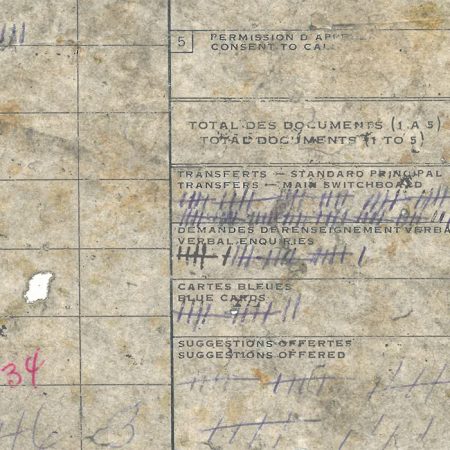 5 PERMISSION D'APP
CONSENT TO CAL
TOTAL DES DOCUMENTS (1 A 5)
TOTAL DOCUMENTS (1 TO 5)
TRANSFERTS — STANDARD PRINCIPAL
TRANSFERS — MAIN SWITCHBOARD
DEMANDES DE RENSEIGNEMENT VERBA
VERBAL ENQUIRIES
CARTES BLEUES
BLUE CARDS
34
SUGGESTIONS OFFERTES
SUGGESTIONS OFFERED
46 3